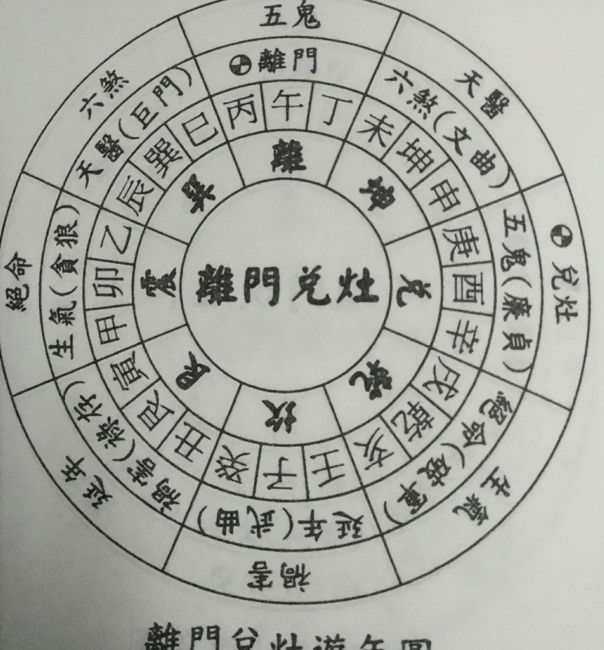 五鬼
天醫
兌灶
生氣
禍害
延年
絕命
六煞
離門
六煞(文曲)
五鬼(廉貞)
絕命(破軍)
延年(武曲)
禍害(祿存)
生氣(貪狼)
天醫(巨門)
丙午丁
未坤申
庚酉辛
戌乾亥
壬子癸
丑艮寅
甲卯乙
辰巽巳
離
坤
兌
乾
坎
艮
震
巽
離門兌灶
離門兌灶遊年圖